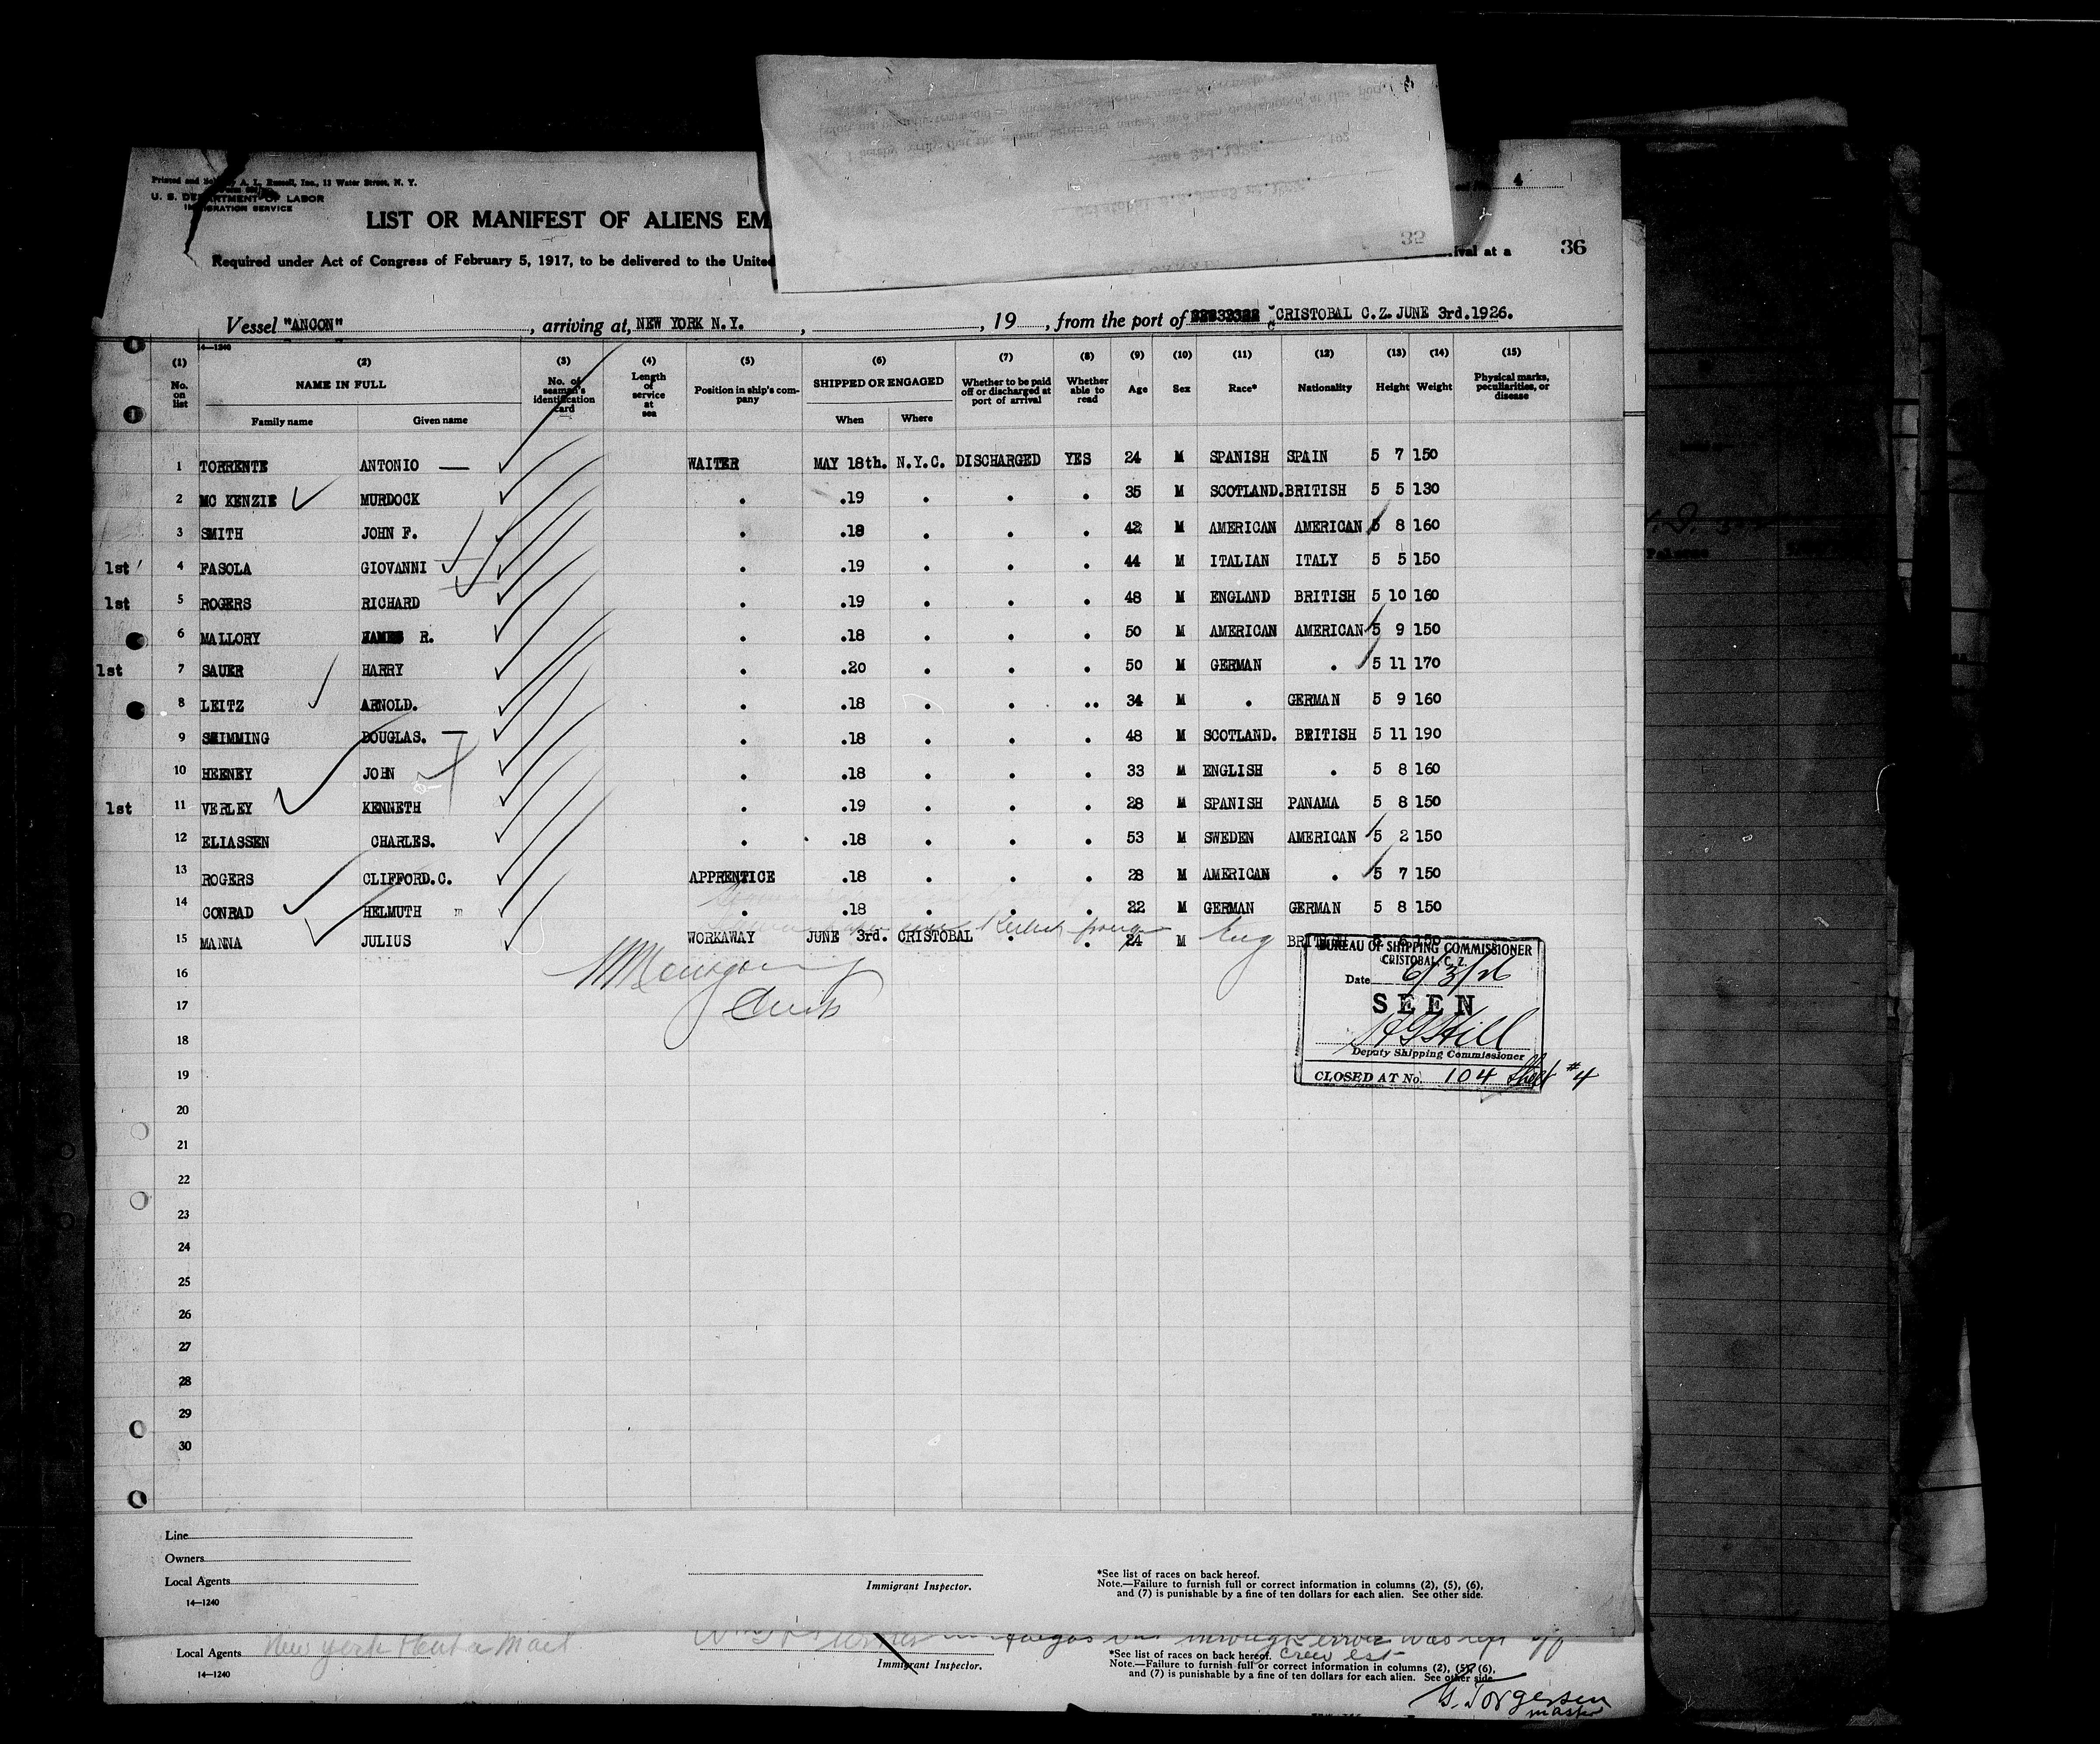 4
Printed and Sold by A. L. Russell, Inc., 12 Water Street, N. Y.
U. S. DEPARTMENT OF LABOR
IMMIGRATION SERVICE
LIST OR MANIFEST OF ALIENS EM
36
Required under Act of Congress of February 5, 1917, to be delivered to the United arrival at a
I hereby certify that the
June 2nd. 1926. 192
35
Vessel "ANCON", arriving at, NEW YORK N.Y., , 19 , from the port of CRISTOBAL C.Z. JUNE 3rd.1926.
14—1240
(1) (2) (3) (4) (5) (6) (7) (8) (9) (10) (11) (12) (13) (14) (15)
No. on list NAME IN FULL No. of seaman's identification card Length of service at sea Position in ship's company SHIPPED OR ENGAGED Whether to be paid off or discharged at port of arrival Whether able to read Age Sex Race* Nationality Height Weight Physical marks, peculiarities, or disease
Family name Given name When Where
1 TORRENTE ANTONIO — WAITER MAY 18th. N.Y.C. DISCHARGED YES 24 M SPANISH SPAIN 5 7 150
2 MC KENZIE MURDOCK . .19 . . . 35 M SCOTLAND. BRITISH 5 5 130
3 SMITH JOHN F. . .18 . . . 42 M AMERICAN AMERICAN 5 8 160
1st 4 FASOLA GIOVANNI . .19 . . . 44 M ITALIAN ITALY 5 5 150
1st 5 ROGERS RICHARD . .19 . . . 48 M ENGLAND BRITISH 5 10 160
6 MALLORY JAMES R. . .18 . . . 50 M AMERICAN AMERICAN 5 9 150
1st 7 SAUER HARRY . .20 . . . 50 M GERMAN . 5 11 170
8 LEITZ ARNOLD. . .18 . . .. 34 M . GERMAN 5 9 160
9 SHIMMING DOUGLAS. . .18 . . . 48 M SCOTLAND. BRITISH 5 11 190
10 HEENEY JOHN . .18 . . . 33 M ENGLISH . 5 8 160
1st 11 VERLEY KENNETH . .19 . . . 28 M SPANISH PANAMA 5 8 150
12 ELIASSEN CHARLES. . .18 . . . 53 M SWEDEN AMERICAN 5 2 150
13 ROGERS CLIFFORD.C. APPRENTICE .18 . . . 28 M AMERICAN . 5 7 150
14 CONRAD HELMUTH . .18 . . . 22 M GERMAN GERMAN 5 8 150
15 MANNA JULIUS WORKAWAY JUNE 3rd. CRISTOBAL . . 24 M Eng BRITISH 5 6 150
16
17
18
19
20
21
22
23
24
25
26
27
28
29
30
BUREAU OF SHIPPING COMMISSIONER
CRISTOBAL, C. Z.
Date 6/3/26
SEEN
Deputy Shipping Commissioner
CLOSED AT No. 104 Sheet #4
Line
Owners
Local Agents
14—1240
Immigrant Inspector.
*See list of races on back hereof.
Note.—Failure to furnish full or correct information in columns (2), (5), (6),
and (7) is punishable by a fine of ten dollars for each alien. See other side.
Local Agents New York
14—1240
Immigrant Inspector.
through error was left off
*See list of races on back hereof. Crew list
Note.—Failure to furnish full or correct information in columns (2), (5), (6),
and (7) is punishable by a fine of ten dollars for each alien. See other side.
G. Jorgensen
master